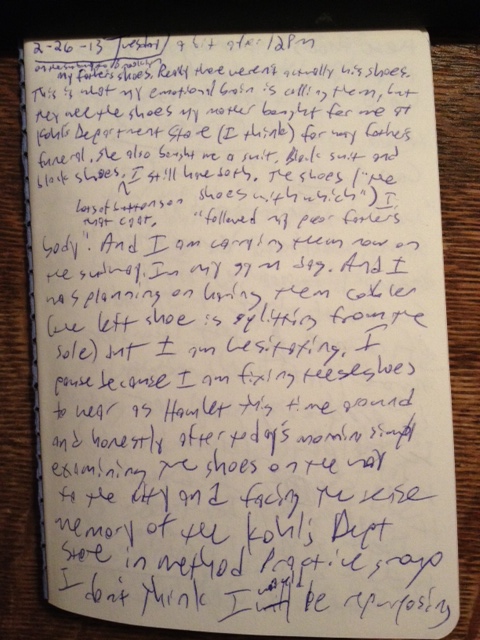 2-26-13 Tuesday a bit after 128m
my fathers shoes. Really these weren't actually his shoes.
This is what my emotional brain is calling them, but
they were the shoes my mother bought for me at
Kohls Department Store (I think) for my fathers
funeral. She also bought me a suit. Black suit and
black shoes. I still have both. The shoes ("the
shoes with which") I
Lots of buttons on
that coat. "followed my poor fathers
body". And I am carrying them now on
the subway. In my gym bag. And I
was planning on having them cobbled
(the left shoe is splitting from the
sole) but I am hesitating. I
pause because I am fixing these shoes
to wear as Hamlet this time around
and honestly after today's morning simply
examining the shoes on the way
to the city and facing the sense
memory of the Kohl's Dept
Store in method Practice group
I don't think I will be repurposing